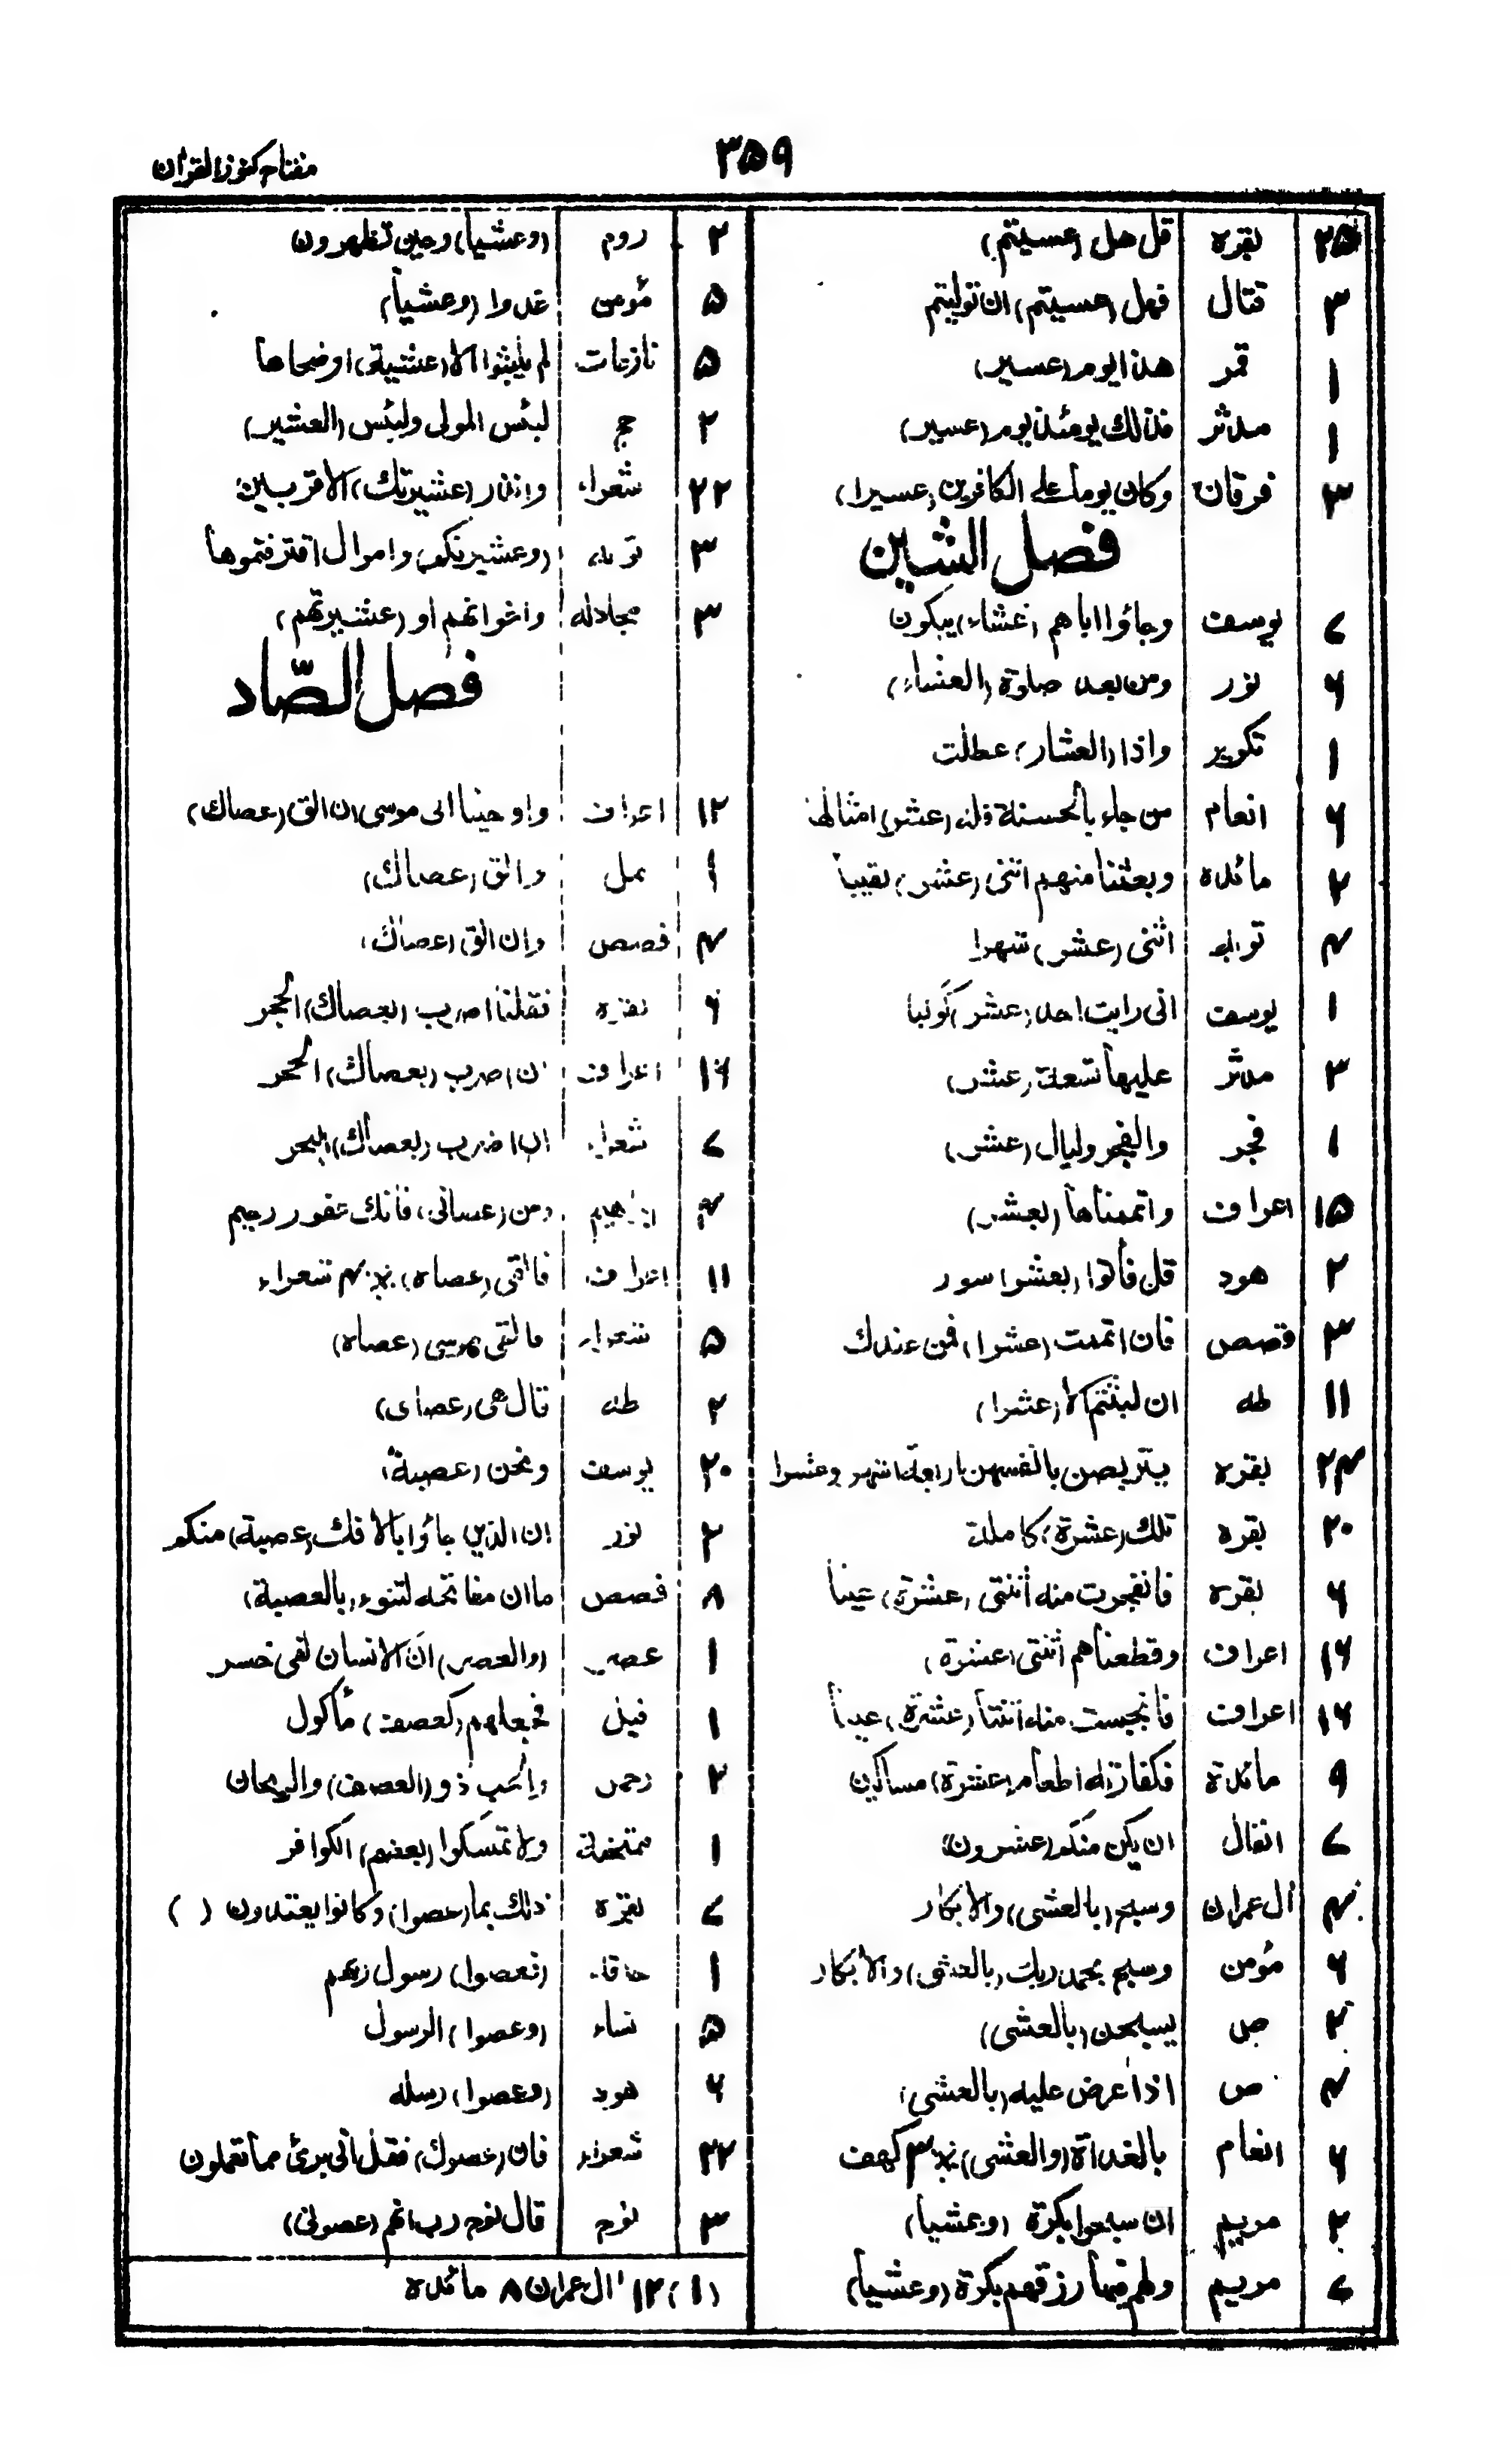 مفتاح کنوز القران
۳۵۹
۲۵ بقره قل هل (عسیتم)
۳ قتال فهل (عسیتم) ان تولیتم
۱ قمر هذا یوم (عسیر)
۱ مدثر فذلك یومئذ یوم (عسیر)
۳ فرقان وکان یوما علی الکافرین (عسیرا)
فصل الشین
۷ یوسف وجاؤا اباهم (عشاء) یبکون
۶ نور ومن بعد صلوة (العشاء)
۱ تکویر واذا (العشار) عطلت
۶ انعام من جاء بالحسنة فله (عشر) امثالها
۲ مائده وبعثنا منهم اثنی (عشر) نقیبا
۴ توبه اثنی (عشر) شهرا
۱ یوسف انی رایت احد (عشر) کوکبا
۳ مدثر علیها تسعة (عشر)
۱ فجر والفجر ولیال (عشر)
۱۵ اعراف واتممناها (بعشر)
۲ هود قل فأتوا (بعشر) سور
۳ قصص فان اتممت (عشرا) فمن عندك
۱۱ طه ان لبثتم الا (عشرا)
۲۴ بقره یتربصن بانفسهن اربعة اشهر وعشرا
۲۰ بقره تلك (عشرة) کاملة
۶ بقره فانفجرت منه اثنتی (عشرة) عینا
۱۶ اعراف وقطعناهم اثنتی (عشرة)
۱۶ اعراف فانبجست منه اثنتا (عشرة) عینا
۹ مائدة فکفارته اطعام (عشرة) مساکین
۷ انفال ان یکن منکم (عشرون)
۴ ال عمران وسبح (بالعشی) والابکار
۶ مؤمن وسبح بحمد ربك (بالعشی) والابکار
۲ ص یسبحن (بالعشی)
۴ ص اذ عرض علیه (بالعشی)
۶ انعام بالغداة (والعشی) ۳ کهف
۲ مریم ان سبحوا بکرة (وعشیا)
۷ مریم ولهم فیها رزقهم بکرة (وعشیا)
۲ روم (وعشیا) وحین تظهرون
۵ مؤمن غدوا (وعشیا)
۵ نازعات لم یلبثوا الا (عشیة) اوضحاها
۲ حج لبئس المولی ولبئس (العشیر)
۲۲ شعراء وانذر (عشیرتك) الاقربین
۳ توبه (وعشیرتکم) واموال اقترفتموها
۳ مجادله واخوانهم او (عشیرتهم)
فصل الصّاد
۱۲ اعراف واوحینا الی موسی ان الق (عصاك)
۱ نمل والق (عصاك)
۴ قصص وان الق (عصاك)
۶ بقره فقلنا اضرب (بعصاك) الحجر
۱۶ اعراف ان اضرب (بعصاك) الحجر
۷ شعراء ان اضرب (بعصاك) البحر
ابراهیم ومن (عصانی) فانك غفور رحیم
۱۱ اعراف فالقی (عصاه) شعراء
۵ شعراء فالقی موسی (عصاه)
۲ طه قال هی (عصای)
۲۰ یوسف ونحن (عصبة)
۲ نور ان الذین جاؤا بالافك (عصبة) منکم
۸ قصص ما ان مفاتحه لتنوء (بالعصبة)
۱ عصر (والعصر) ان الانسان لفی خسر
۱ فیل فجعلهم (کعصف) مأکول
۲ رحمن والحب ذو (العصف) والریحان
۱ ممتحنه ولا تمسکوا (بعصم) الکوافر
۷ بقره ذلك بما (عصوا) وکانوا یعتدون ( )
۱ حاقه (فعصوا) رسول ربهم
۵ نساء (وعصوا) الرسول
۶ هود (وعصوا) رسله
۲۲ شعراء فان (عصوك) فقل انی برئ مما تعملون
۳ نوح قال نوح رب انهم (عصونی)
(۱) ۱۲ ال عمران ۸ مائده